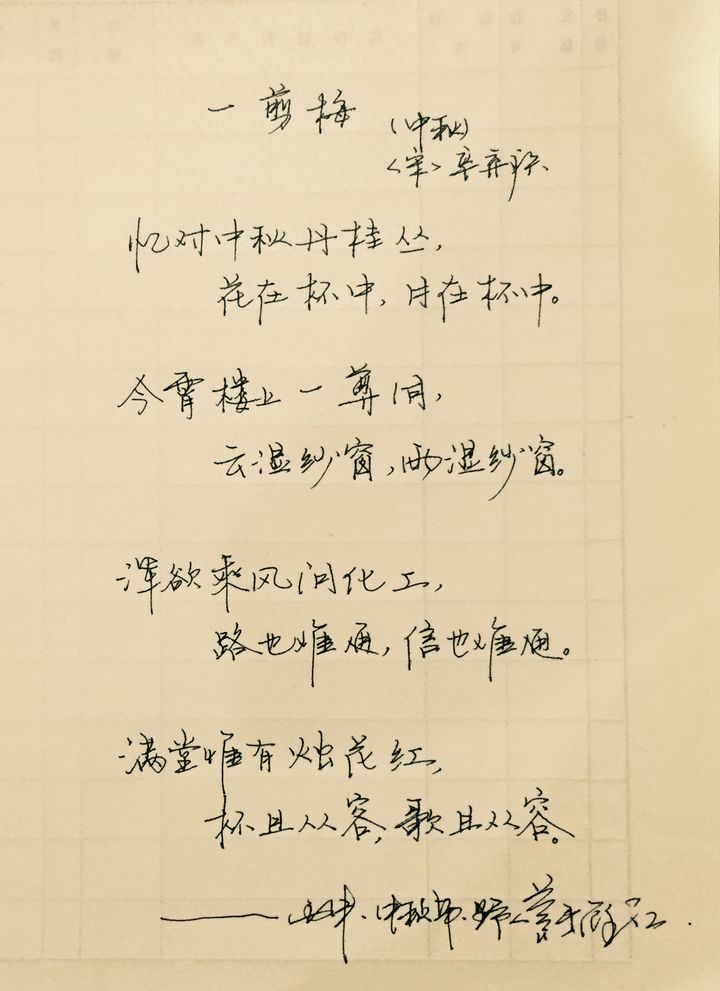 一剪梅
(中秋)
<宋>辛弃疾
忆对中秋丹桂丛,
花在杯中,月在杯中。
今宵楼上一尊同,
云湿纱窗,雨湿纱窗。
浑欲乘风问化工,
路也难通,信也难通。
满堂惟有烛花红,
杯且从容,歌且从容。